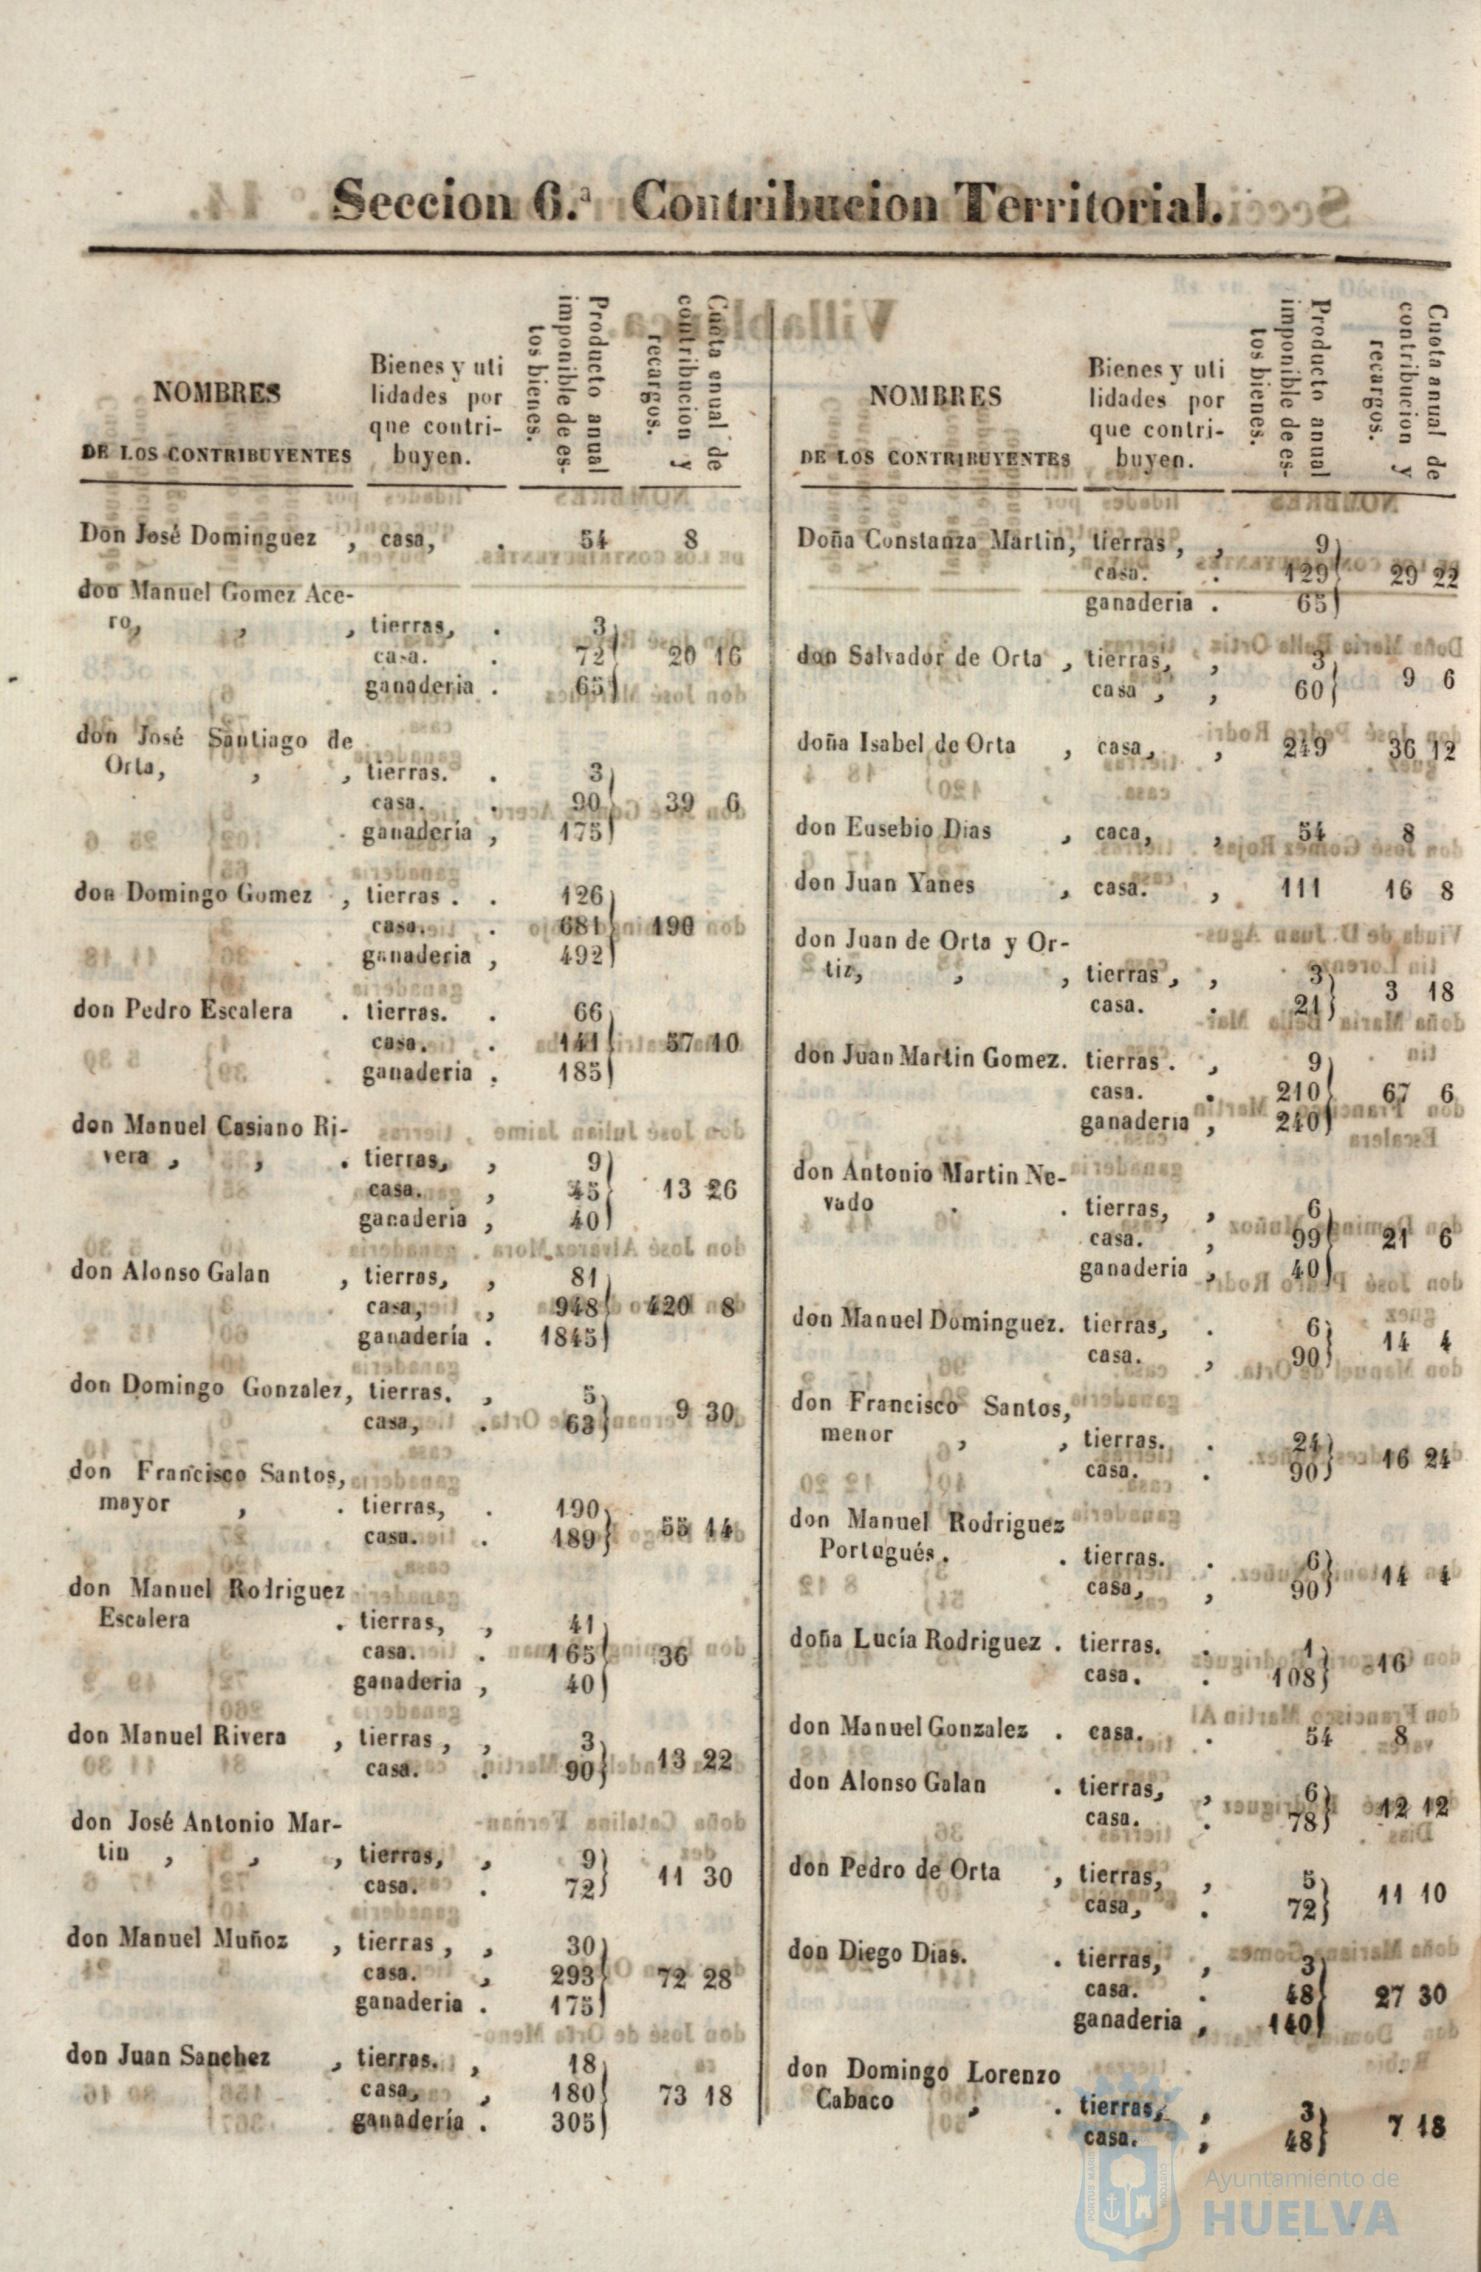 Seccion 6.ª Contribucion Territorial.
NOMBRES
DE LOS CONTRIBUYENTES
Bienes y uti
lidades por
que contri-
buyen.
Producto anual
imponible de es-
tos bienes.
Cuota enual de
contribucion y
recargos.
Don José Dominguez , casa, . 54 8
don Manuel Gomez Ace-
ro, , , tierras, . 3
casa. . 72 20 16
ganaderia . 65
don José Santiago de
Orta, , , tierras. . 3
casa. . 90 39 6
ganadería , 175
don Domingo Gomez , tierras . . 126
casa. . 681 190
ganaderia , 492
don Pedro Escalera . tierras. . 66
casa. . 141 57 10
ganaderia . 185
don Manuel Casiano Ri-
vera , , . tierras, , 9
casa. , 45 13 26
ganaderia , 40
don Alonso Galan , tierras, , 81
casa, , 948 420 8
ganadería . 1845
don Domingo Gonzalez, tierras. , 5
casa, . 63 9 30
don Francisco Santos,
mayor , . tierras, . 190
casa. . 189 55 14
don Manuel Rodriguez
Escalera . tierras, , 41
casa. . 165 36
ganaderia , 40
don Manuel Rivera , tierras , , 3
casa. . 90 13 22
don José Antonio Mar-
tin , , , tierras, , 9
casa. . 72 11 30
don Manuel Muñoz , tierras , , 30
casa. , 293 72 28
ganaderia . 175
don Juan Sanchez , tierras. , 18
casa, , 180 73 18
ganadería . 305
NOMBRES
DE LOS CONTRIBUYENTES
Bienes y uti
lidades por
que contri-
buyen.
Producto anual
imponible de es-
tos bienes.
Cuota anual de
contribucion y
recargos.
Doña Constanza Martin, tierras , , 9
casa. . 129 29 22
ganaderia . 65
don Salvador de Orta , tierras, , 3
casa , , 60 9 6
doña Isabel de Orta , casa, , 249 36 12
don Eusebio Dias , caca, , 54 8
don Juan Yanes , casa. , 111 16 8
don Juan de Orta y Or-
tiz, , , tierras , , 3
casa. . 21 3 18
don Juan Martin Gomez. tierras . , 9
casa. . 210 67 6
ganaderia , 240
don Antonio Martin Ne-
vado . . tierras, , 6
casa. , 99 21 6
ganaderia , 40
don Manuel Dominguez. tierras, . 6
casa. , 90 14 4
don Francisco Santos,
menor , , tierras. . 24
casa. . 90 16 24
don Manuel Rodriguez
Portugués. . tierras. . 6
casa, , 90 14 4
doña Lucía Rodriguez . tierras. . 1
casa. . 108 16
don Manuel Gonzalez . casa. . 54 8
don Alonso Galan . tierras, , 6
casa. . 78 12 12
don Pedro de Orta , tierras, , 5
casa, . 72 11 10
don Diego Dias. . tierras, , 3
casa. . 48 27 30
ganaderia , 140
don Domingo Lorenzo
Cabaco , . tierras, , 3
casa. , 48 7 18
Ayuntamiento de
HUELVA